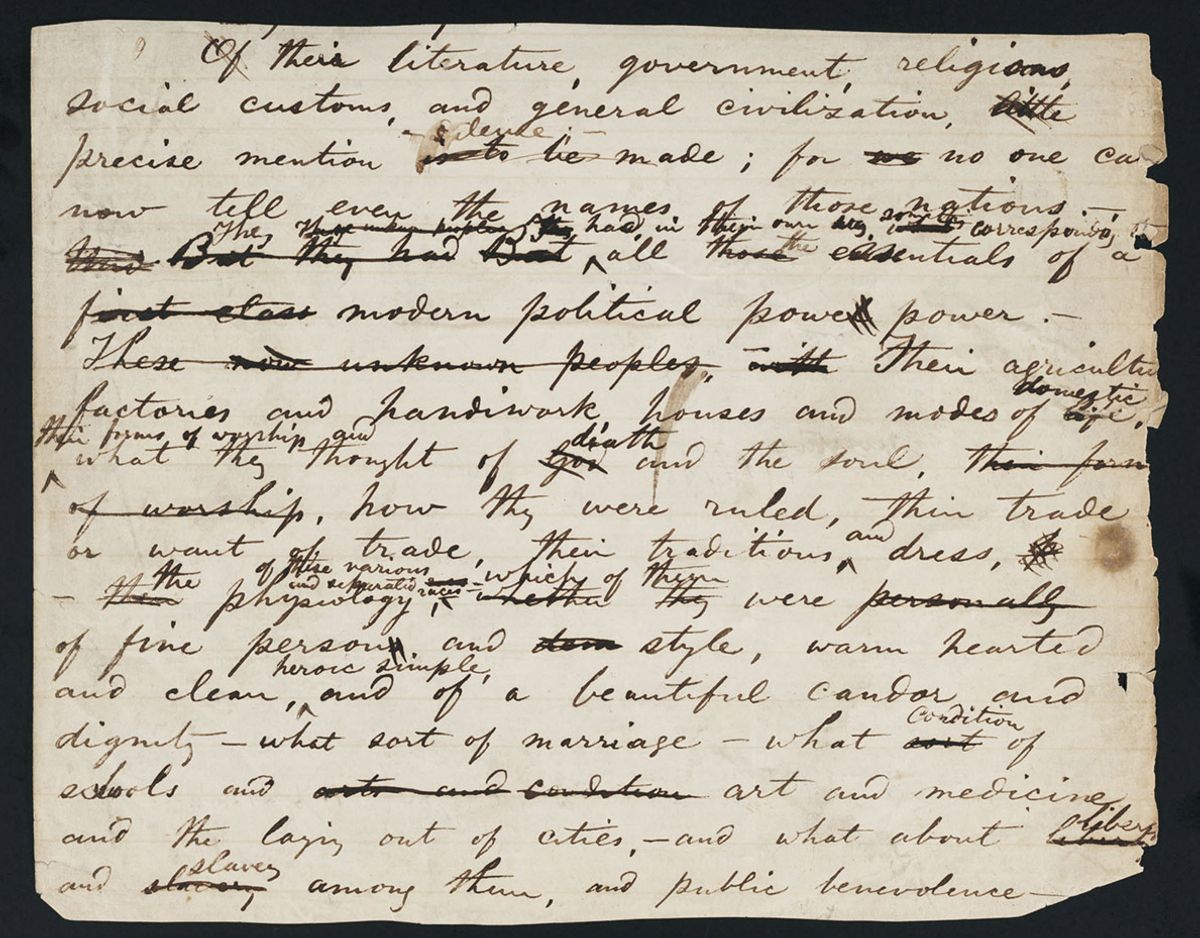 Of their literature, government, religions,
social customs, and general civilization, little
silence ; —
precise mention is to be made ; for we no one ca
now tell even the names of those nations —
They These unknown peoples they had in their own way, something corresponding to
They But they had But all those the essentials of a
first class modern political power power . —
These now unknown peoples, with Their agricultu
domestic
factories and handiwork, houses and modes of life,
their forms of worship and
death
what they thought of God and the soul, their form
of worship, how they were ruled, their trade
and
or want of trade, their traditions, dress,
the of these various which of them
and separated races —
— them physiology, whether they were personally
of fine person and dem style, warm hearted
heroic simple,
and clean, and of a beautiful candor and
condition
dignity — what sort of marriage — what sort of
schools and arts and condition art and medicine
and the laying out of cities, — and what about liberty
slavery
and slavery among them, and public benevolence —